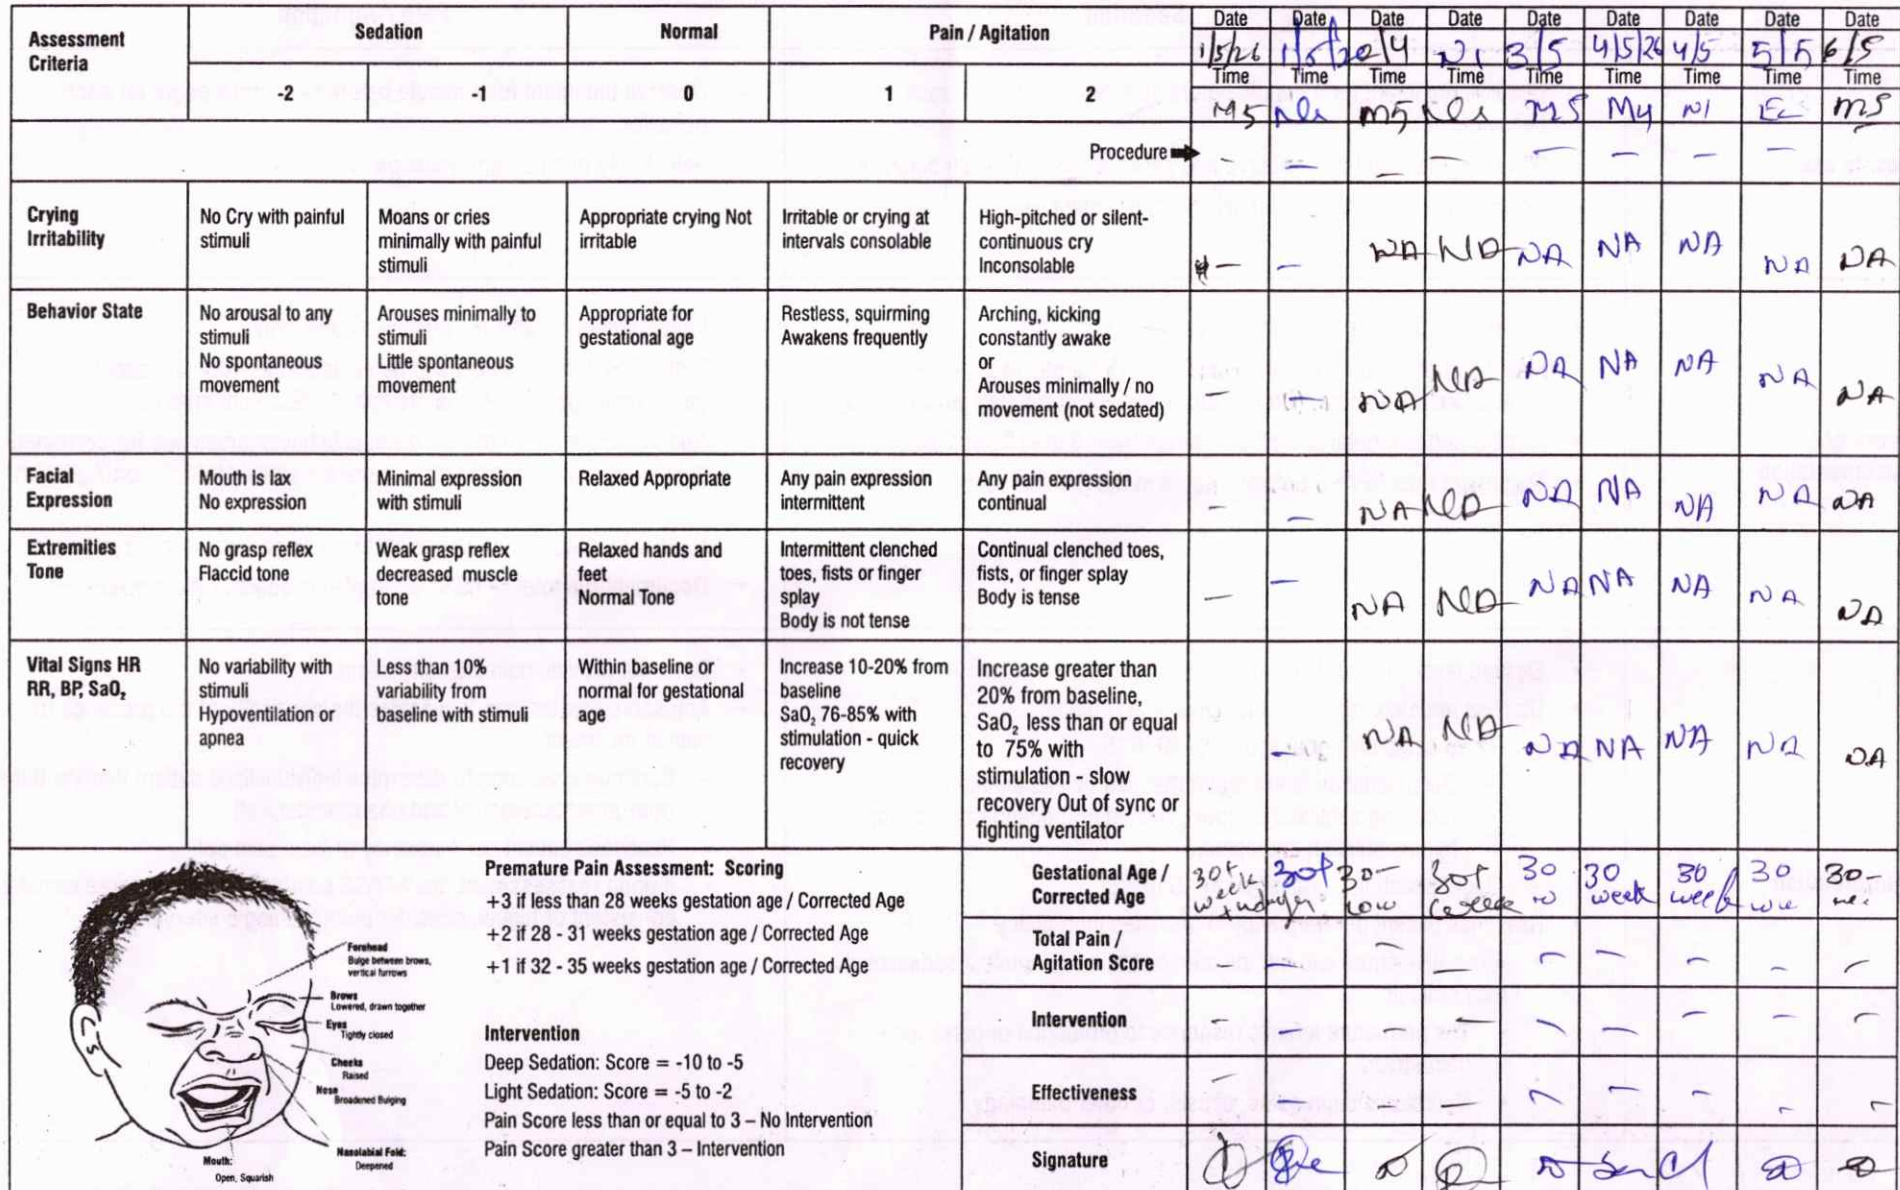 Assessment Criteria
Sedation
Normal
Pain / Agitation
Date Date Date Date Date Date Date Date Date
1/5/26 3/5 4/5/26 4/5 5/5 6/5
-2 -1 0 1 2
Time Time Time Time Time Time Time Time Time
M5 M5 M5 M4 N1 M5
Procedure
- - - - - - -
Crying Irritability
No Cry with painful stimuli
Moans or cries minimally with painful stimuli
Appropriate crying Not irritable
Irritable or crying at intervals consolable
High-pitched or silent-continuous cry Inconsolable
- - NA NA NA NA NA NA NA
Behavior State
No arousal to any stimuli
No spontaneous movement
Arouses minimally to stimuli
Little spontaneous movement
Appropriate for gestational age
Restless, squirming
Awakens frequently
Arching, kicking constantly awake
or
Arouses minimally / no movement (not sedated)
- - NA NA NA NA NA NA NA
Facial Expression
Mouth is lax
No expression
Minimal expression with stimuli
Relaxed Appropriate
Any pain expression intermittent
Any pain expression continual
- - NA NA NA NA NA NA NA
Extremities Tone
No grasp reflex
Flaccid tone
Weak grasp reflex decreased muscle tone
Relaxed hands and feet
Normal Tone
Intermittent clenched toes, fists or finger splay
Body is not tense
Continual clenched toes, fists, or finger splay
Body is tense
- - NA NA NA NA NA NA NA
Vital Signs HR RR, BP, SaO₂
No variability with stimuli
Hypoventilation or apnea
Less than 10% variability from baseline with stimuli
Within baseline or normal for gestational age
Increase 10-20% from baseline
SaO₂ 76-85% with stimulation - quick recovery
Increase greater than 20% from baseline, SaO₂ less than or equal to 75% with stimulation - slow recovery Out of sync or fighting ventilator
- - NA NA NA NA NA NA NA
Forehead
Bulge between brows, vertical furrows
Brows
Lowered, drawn together
Eyes
Tightly closed
Cheeks
Raised
Nose
Broadened Bulging
Nasolabial Fold:
Deepened
Mouth:
Open, Squarish
Premature Pain Assessment: Scoring
+3 if less than 28 weeks gestation age / Corrected Age
+2 if 28 - 31 weeks gestation age / Corrected Age
+1 if 32 - 35 weeks gestation age / Corrected Age
Intervention
Deep Sedation: Score = -10 to -5
Light Sedation: Score = -5 to -2
Pain Score less than or equal to 3 – No Intervention
Pain Score greater than 3 – Intervention
Gestational Age / Corrected Age
30+ week 30+ 30 30+ 30 30 week 30 week 30 30
Total Pain / Agitation Score
Intervention
Effectiveness
Signature